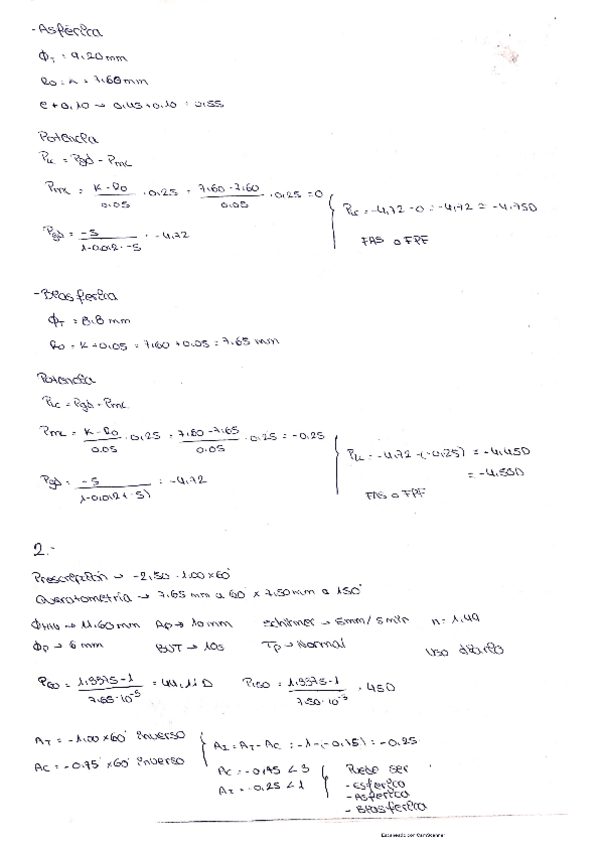 - Asférica
ΦT = 9,20 mm
R0 = K = 7,60 mm
e + 0,10 → 0,45 + 0,10 = 0,55
Potencia
PLC = Pgd - Pmc
Pmc = (K - R0)/0.05 · 0,25 = (7,60 - 7,60)/0.05 · 0,25 = 0
PLC = -4,72 - 0 = -4,72 ≈ -4,75D
Pgd = -5/(1-0,012·-5) = -4,72
FAS o FPF
- Biasférica
ΦT = 8,8 mm
R0 = K + 0,05 = 7,60 + 0,05 = 7,65 mm
Potencia
PLC = Pgd - Pmc
Pmc = (K - R0)/0.05 · 0,25 = (7,60 - 7,65)/0.05 · 0,25 = -0,25
PLC = -4,72 -(-0,25) = -4,45D
= -4,50D
Pgd = -5/(1-0,012(-5)) = -4,72
FAS o FPF
2.-
Prescripción → -2,50 -1,00 x 60°
Queratometría → 7,65 mm a 60° x 7,50 mm a 150°
ΦHIV → 11,60 mm Ap → 10 mm Schirmer → 5mm / 5 min n = 1,49
Φp → 6 mm BUT → 10s Tp → Normal Uso diario
P60 = (1,3375 - 1)/(7,65·10⁻³) = 44,11 D P150 = (1,3375 - 1)/(7,50·10⁻³) = 45D
AT = -1,00 x 60° inverso
AI = AT - AC = -1 -(-0,75) = -0,25
AC = -0,75 x 60° inverso
AC = -0,75 < 3 Puede ser
AI = -0,25 < 1 - Esférica
- Asférica
- Biasférica
Escaneado con CamScanner